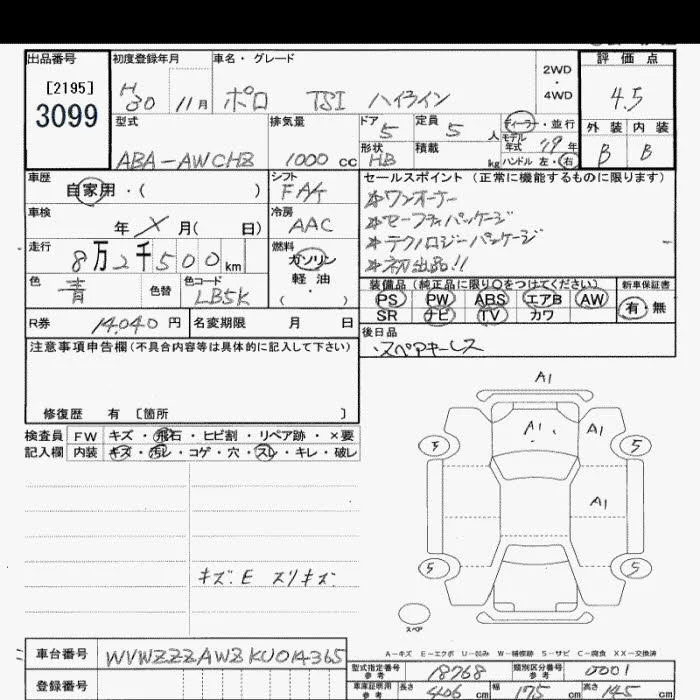 出品番号 初度登録年月 車名・グレード 評価点
[2195]
3099
H30 11月 ポロ TSI ハイライン 2WD・4WD 4.5
型式 排気量 ドア 5 定員 5人 ディーラー・並行 外装 内装
ABA-AWCHZ 1000cc 形状 HB 積載 kg モデル年式 19年 ハンドル 左・右 B B
車歴 シフト セールスポイント(正常に機能するものに限ります)
自家用・( ) FA/t *ワンオーナー
車検 冷房 *セーフティパッケージ
年 月( 日) AAC *テクノロジーパッケージ
走行 燃料 *初出品!!
8万2千500km ガソリン
軽油・( )
色 青 色替 色コード LB5K
装備品(純正品に限り○をつけてください) 新車保証書
PS PW ABS エアB AW 有・無
SR ナビ TV カワ
R券 14,040円 名変期限 月 日
後日品
スペアキーレス
注意事項申告欄(不具合内容等は具体的に記入して下さい)
修復歴 有 [箇所 ]
検査員 FW キズ・飛石・ヒビ割・リペア跡・×要
記入欄 内装 キズ・汚レ・コゲ・穴・スレ・キレ・破レ
キズ.E スリキズ
A1
A1 A1
5 5
A1
5 5
スペア
A-キズ E-エクボ U-凹み W-補修跡 S-サビ C-腐食 XX-交換済
車台番号 WVWZZZAWZKU014365
登録番号
型式指定番号 参考 18768 類別区分番号 参考 0001
車庫証明用 参考 長さ 406cm 幅 175cm 高さ 145cm